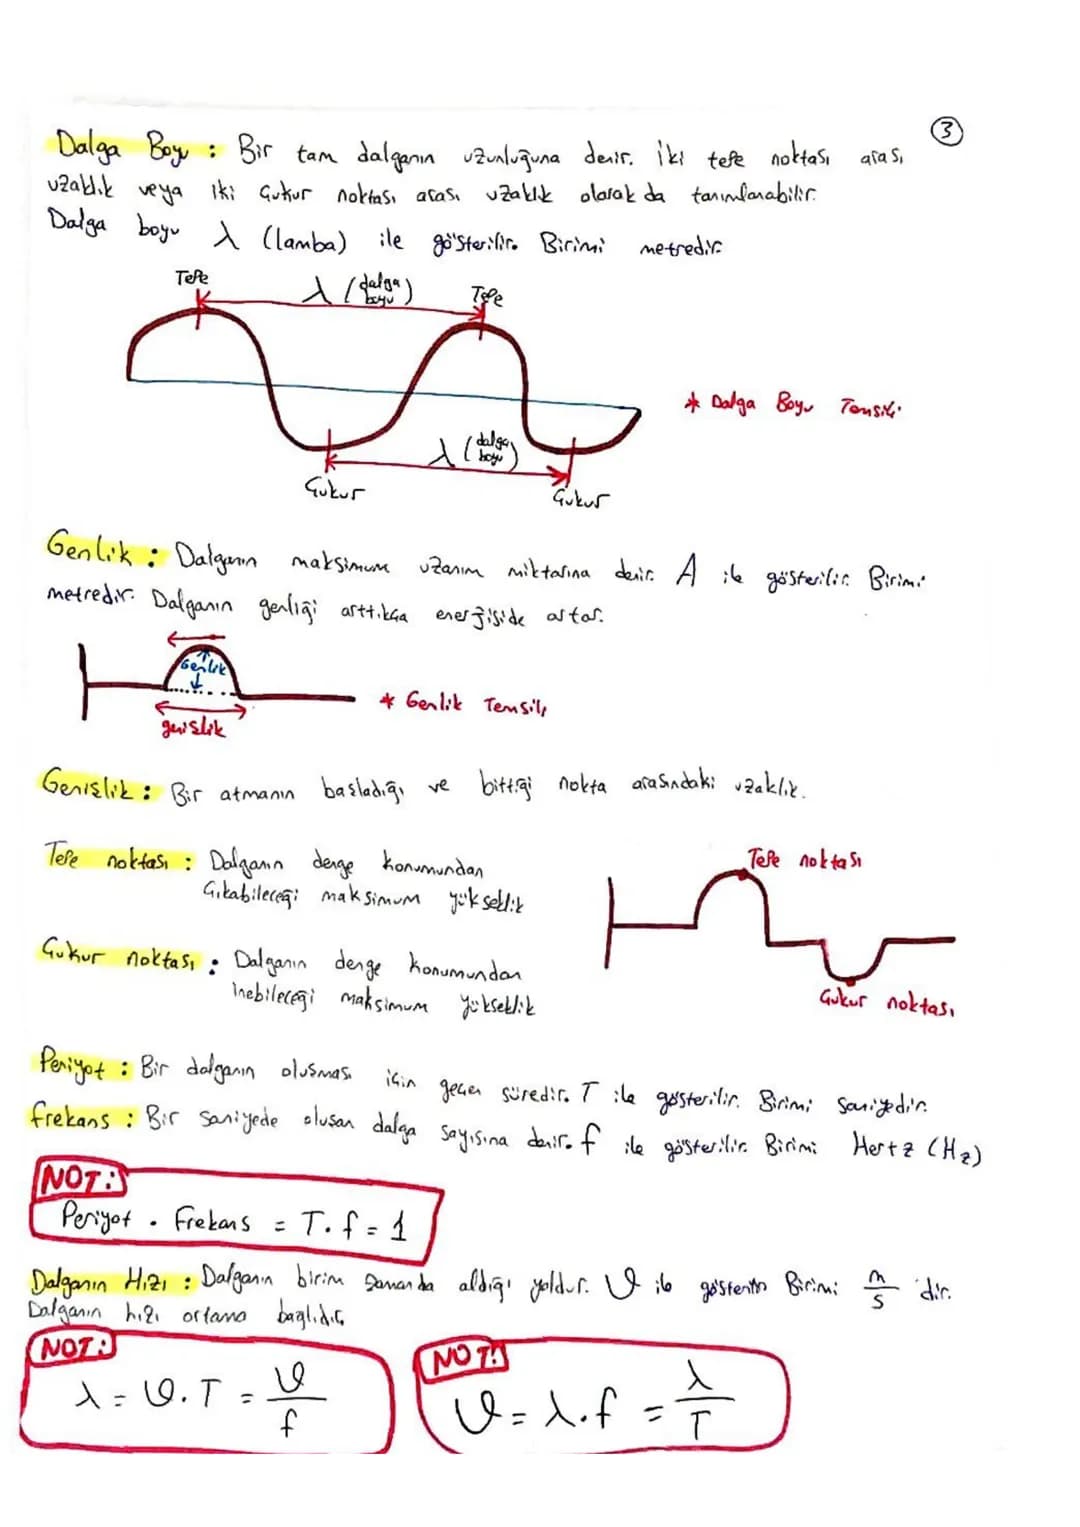 3
Dalga Boyu : Bir tam dalganın uzunluğuna denir. İki tepe noktası arası
uzaklık veya iki Çukur noktası arası uzaklık olarak da tanımlanabilir.
Dalga boyu λ (lamba) ile gösterilir. Birimi metredir.
Tepe λ (dalga boyu) Tepe
* Dalga Boyu Temsili
λ (dalga boyu)
Çukur Çukur
Genlik : Dalganın maksimum uzanım miktarına denir. A ile gösterilir. Birimi
metredir. Dalganın genliği arttıkça enerjiside artar.
Genlik
* Genlik Temsili
genişlik
Genişlik : Bir atmanın başladığı ve bittiği nokta arasındaki uzaklık.
Tepe noktası : Dalganın denge konumundan
Çıkabileceği maksimum yükseklik
Tepe noktası
Çukur noktası : Dalganın denge konumundan
inebileceği maksimum yükseklik
Çukur noktası
Periyot : Bir dalganın oluşması için geçen süredir. T ile gösterilir. Birimi Saniyedir.
frekans : Bir Saniyede oluşan dalga sayısına denir. f ile gösterilir. Birimi Hertz (Hz)
NOT:
Periyot . Frekans = T.f = 1
Dalganın Hızı : Dalganın birim zamanda aldığı yoldur. ϑ ile gösterilir Birimi m/s 'dir.
Dalganın hızı ortama bağlıdır.
NOT:
λ = ϑ.T = ϑ/f
NOT:
ϑ = λ.f = λ/T